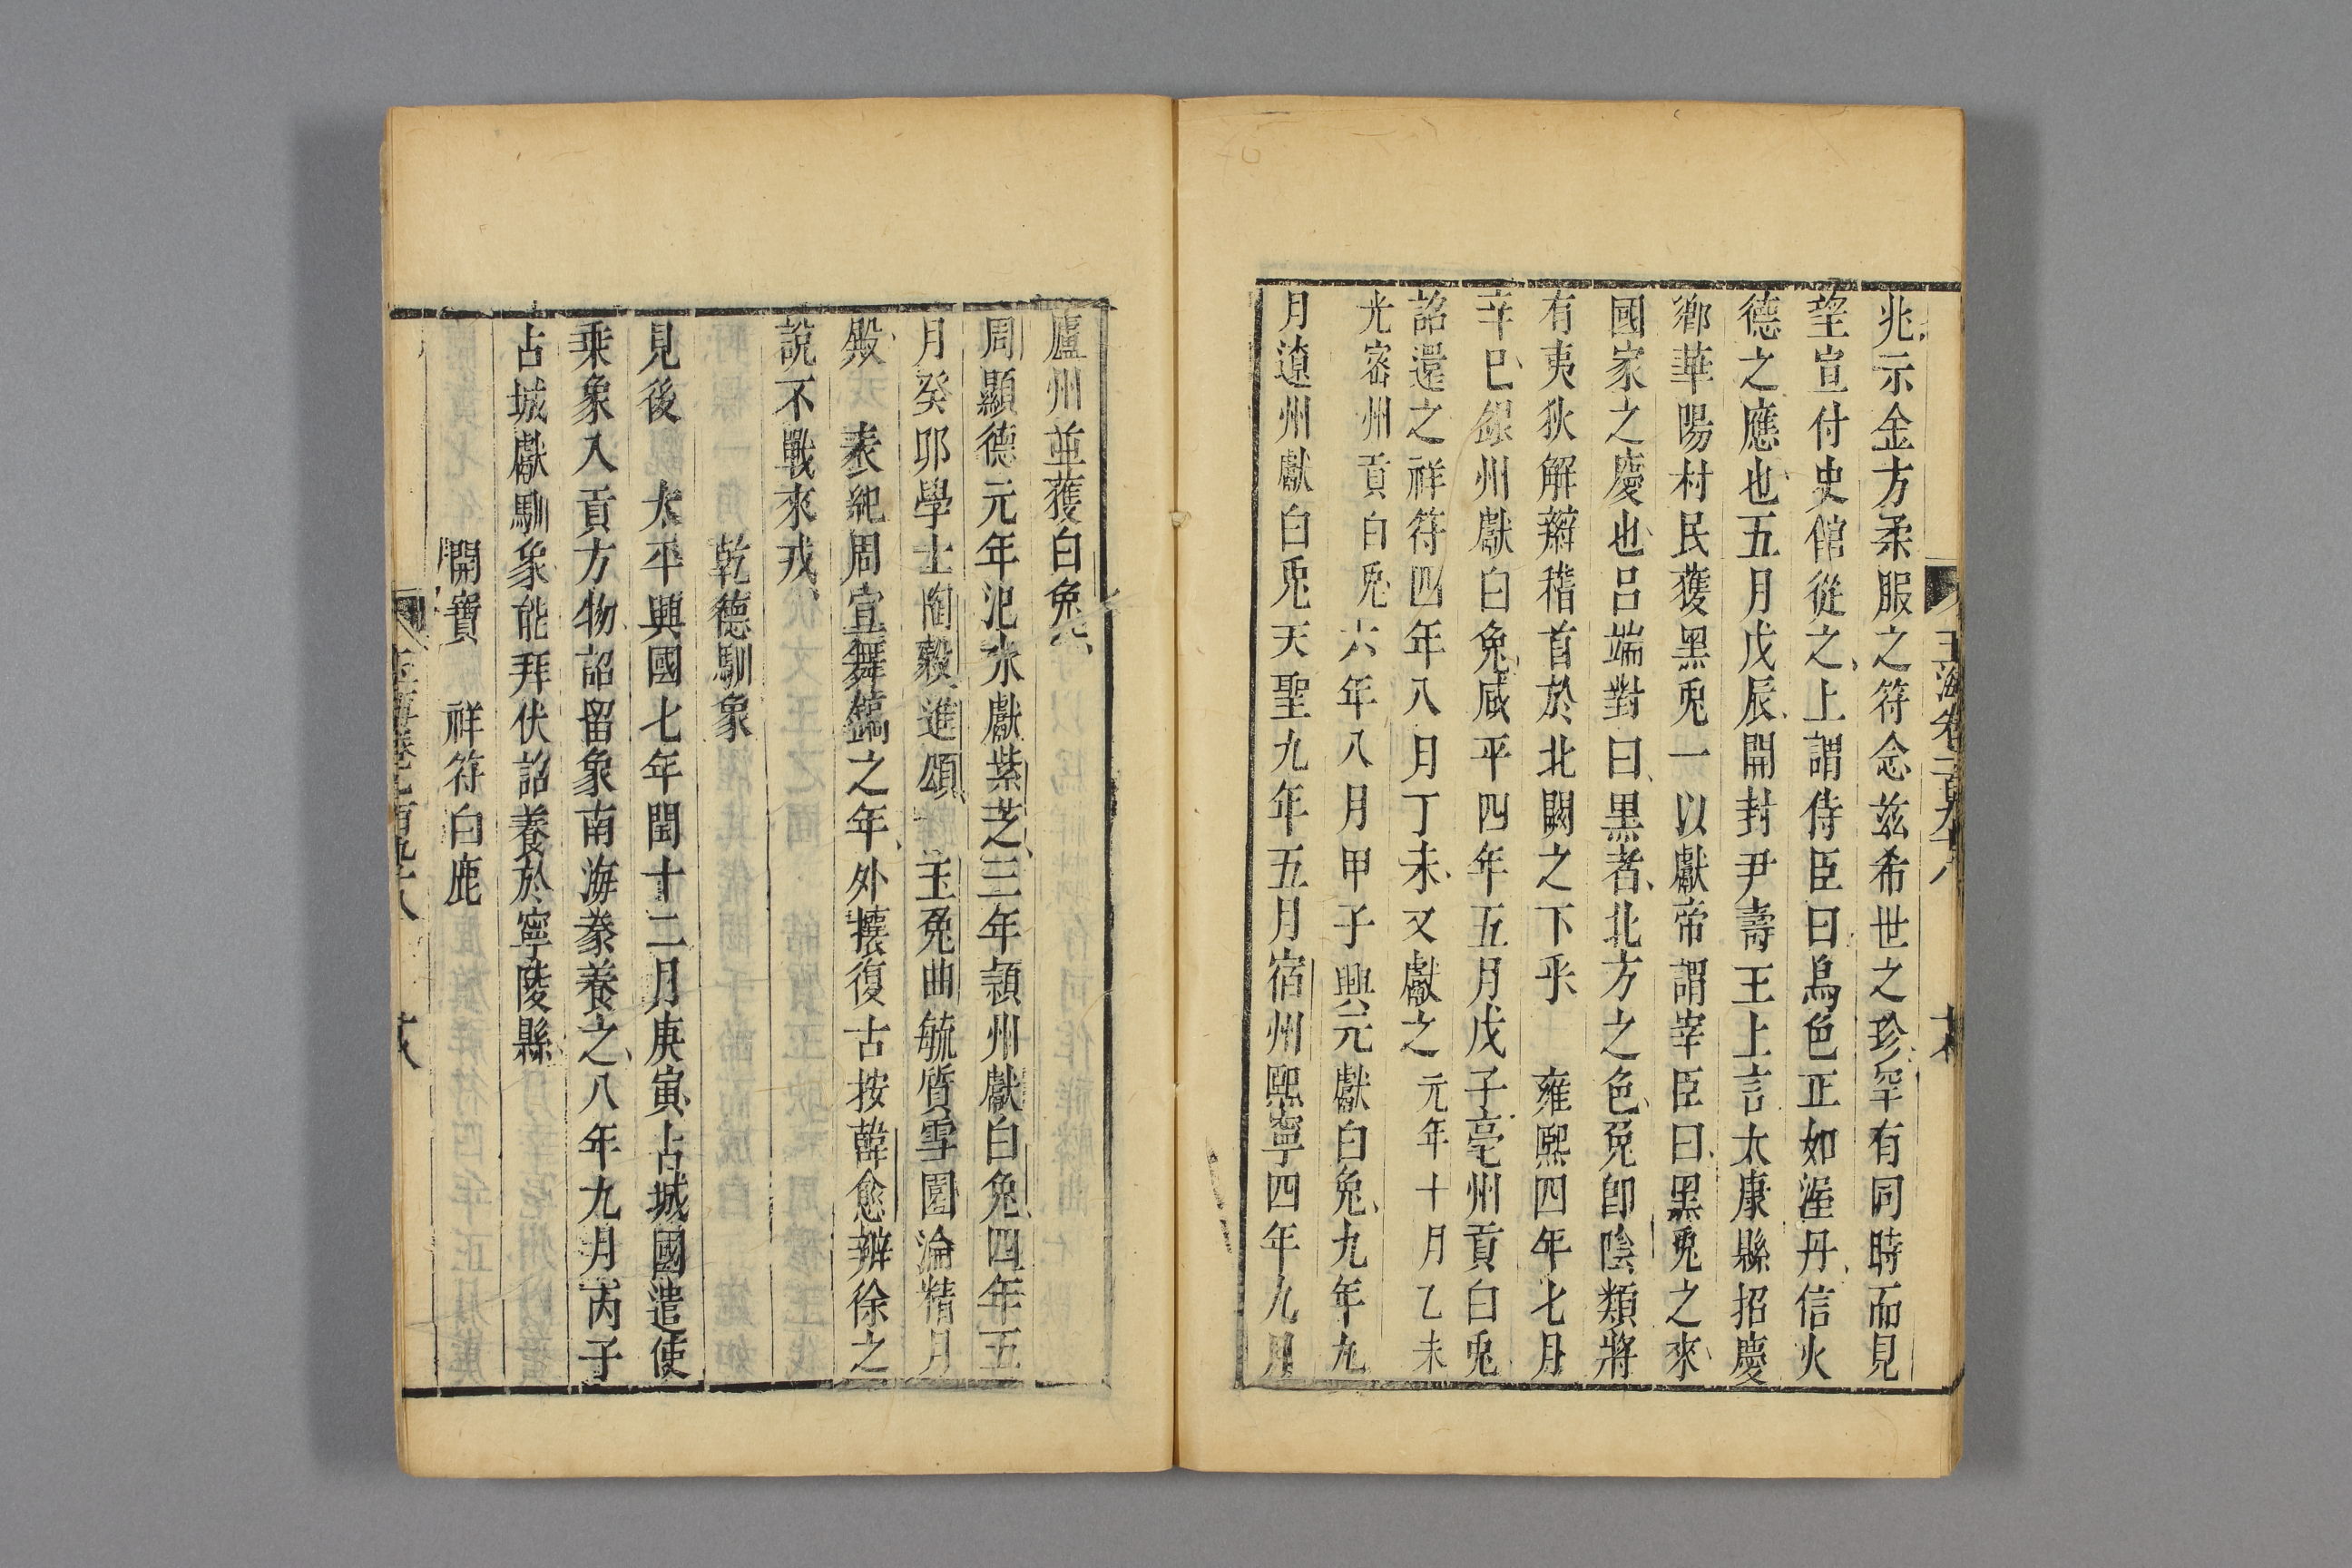 玉海卷一百九十八
兆示金方柔服之符念茲希世之珍罕有同時而見
望宣付史館從之上謂侍臣曰烏色正如渥丹信火
德之應也五月戊辰開封尹壽王上言太康縣招慶
鄉華陽村民獲黑兎一以獻帝謂宰臣曰黑兎之來
國家之慶也呂端對曰黑者北方之色兎卽陰類將
有夷狄解辮稽首於北闕之下乎 雍熙四年七月
辛巳銀州獻白兔咸平四年五月戊子亳州貢白兎
詔還之祥符四年八月丁未又獻之元年十月乙未
光密州貢白兎六年八月甲子興元獻白兔九年九
月遼州獻白兎天聖九年五月宿州熙寧四年九月
廬州並獲白兔
周顯德元年汜水獻紫芝三年潁州獻白兔四年五
月癸卯學士陶穀進頌 玉兔曲毓質雪園淪精月
殿 表紀周宣舞鎬之年外攘復古按韓愈辨徐之
說不戰來戎
乾德馴象
見後 太平興國七年閏十二月庚寅占城國遣使
乘象入貢方物詔留象南海豢養之八年九月丙子
占城獻馴象能拜伏詔養於寧陵縣
開寶 祥符白鹿
玉海卷一百九十八